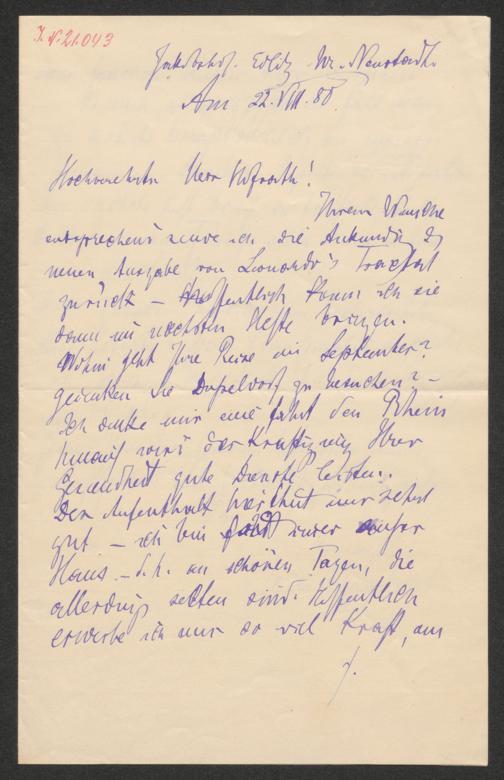 I.N. 21.043
Jakobshof. Edlitz Wr. Neustadt.
Am 22. VIII. 80.
Hochverehrter Herr Hofrath!
Ihrem Wunsche
entsprechend nehme ich die Ankündig. d.
neuen Ausgabe von Leonardo's Tractat
zurück – hoffentlich kann ich sie
dann im nächsten Hefte bringen.
Wohin geht Ihre Reise im September?
gedenken Sie Düsseldorf zu besuchen? –
Ich denke mir eine Fahrt den Rhein
hinauf wird der Kräftigung Ihrer
Gesundheit gute Dienste leisten.
Der Aufenthalt hier thut mir sehr
gut – ich bin fast immer außer
Haus – d. h. an schönen Tagen, die
allerdings selten sind. Hoffentlich
erwerbe ich mir so viel Kraft, um